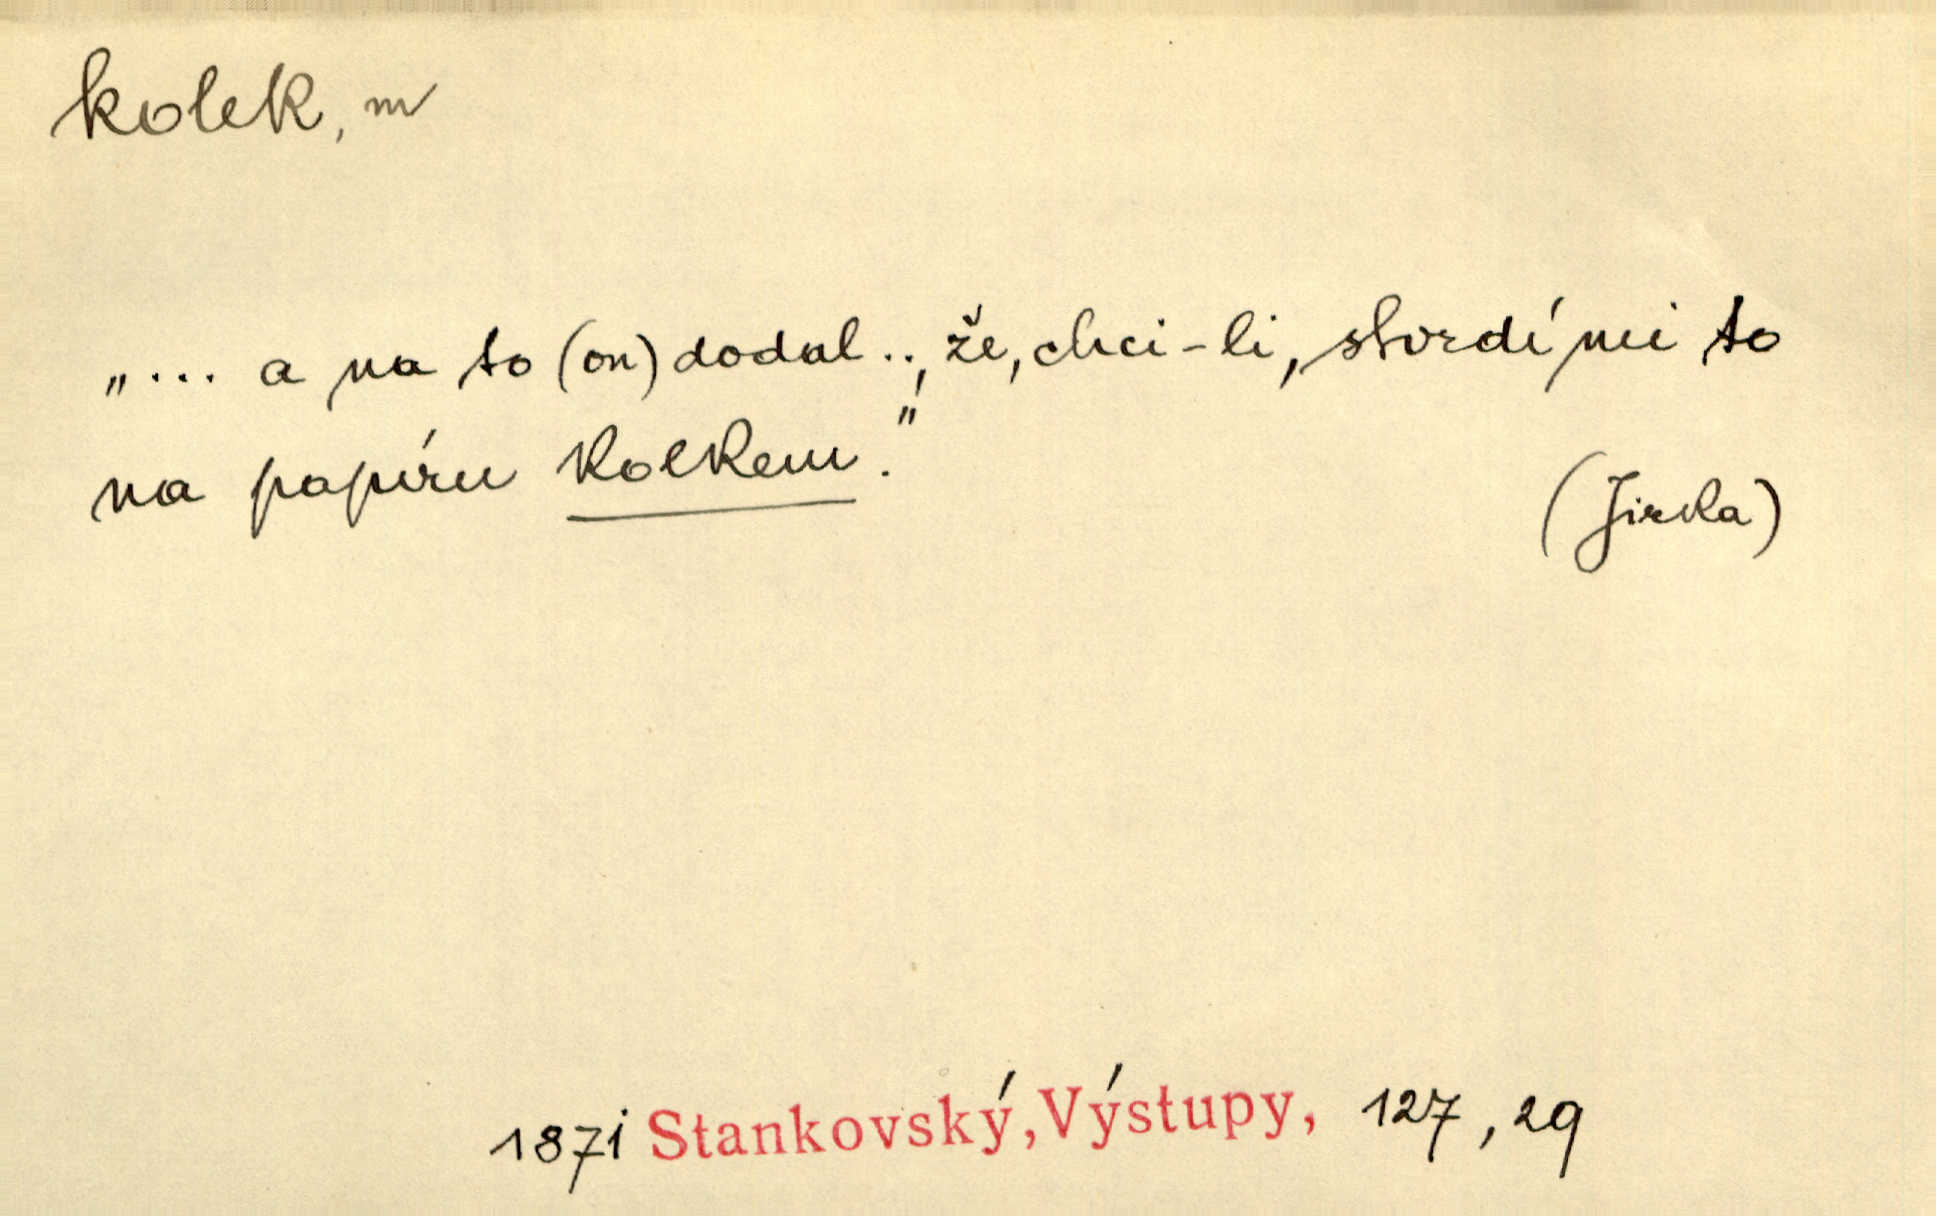 kolek, m
„... a na to (on) dodal .., že, chci-li, stvrdí mi to
na papíru kolkem."
(Jirka)
1871 Stankovský, Výstupy, 127, 29